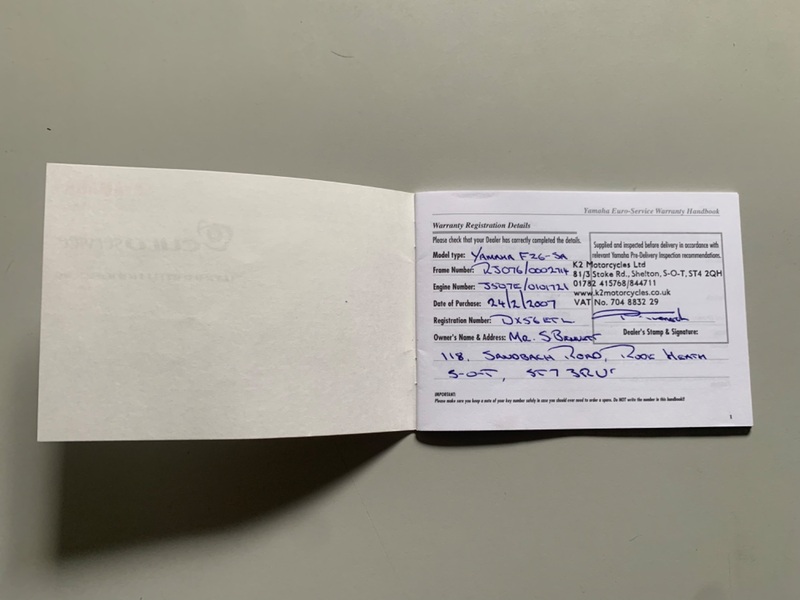 Yamaha Euro-Service Warranty Handbook
Warranty Registration Details
Please check that your Dealer has correctly completed the details.
Model type: YAMAHA FZ6-SA
Frame Number: RJ076/0002714
Engine Number: J507E/0101721
Date of Purchase: 24/2/2007
Registration Number: DX56
Owner's Name & Address: MR. S
118, SANDBACH ROAD, RODE HEATH
S-O-T, ST7 3RU
Supplied and inspected before delivery in accordance with
relevant Yamaha Pre-Delivery Inspection recommendations.
K2 Motorcycles Ltd
81/3 Stoke Rd., Shelton, S-O-T, ST4 2QH
01782 415768/844711
www.k2motorcycles.co.uk
VAT No. 704 8832 29
Dealer's Stamp & Signature:
IMPORTANT:
Please make sure you keep a note of your key number safely in case you should ever need to order a spare. Do NOT write the number in this handbook!!
1